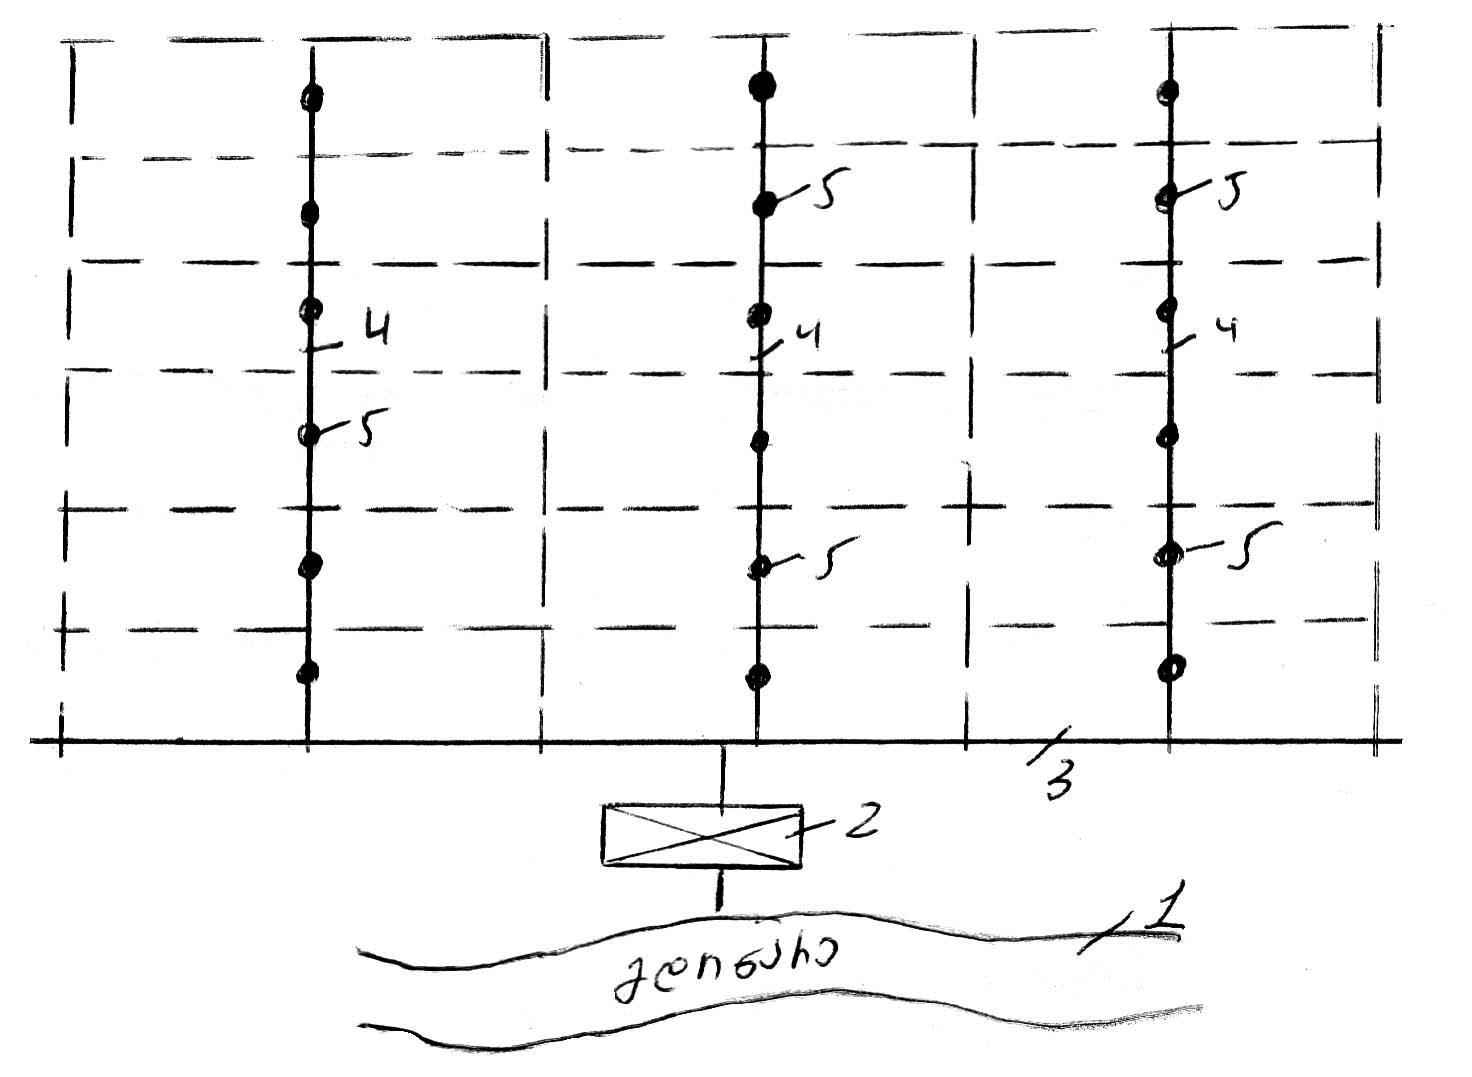 5
5
4
4
4
5
5
5
3
2
1
მდინარე